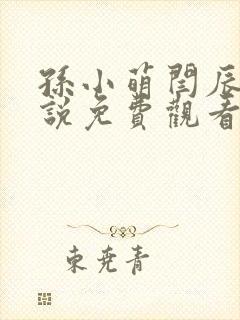 孫小萌閆辰
說免費觀看
東堯青